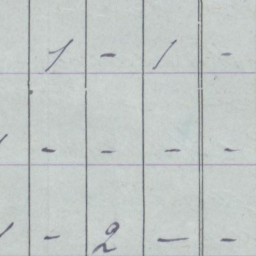 1 - 1 -
- - - -
- 2 - -